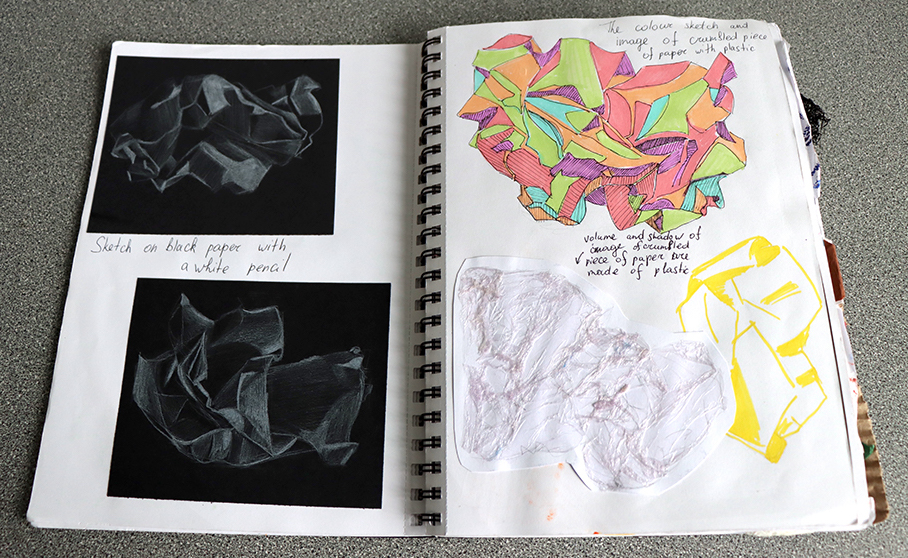 Sketch on black paper with
a white pencil
The colour sketch and
image of crumbled piece
of paper with plastic
volume and shadow of
image of crumbled
piece of paper are
made of plastic